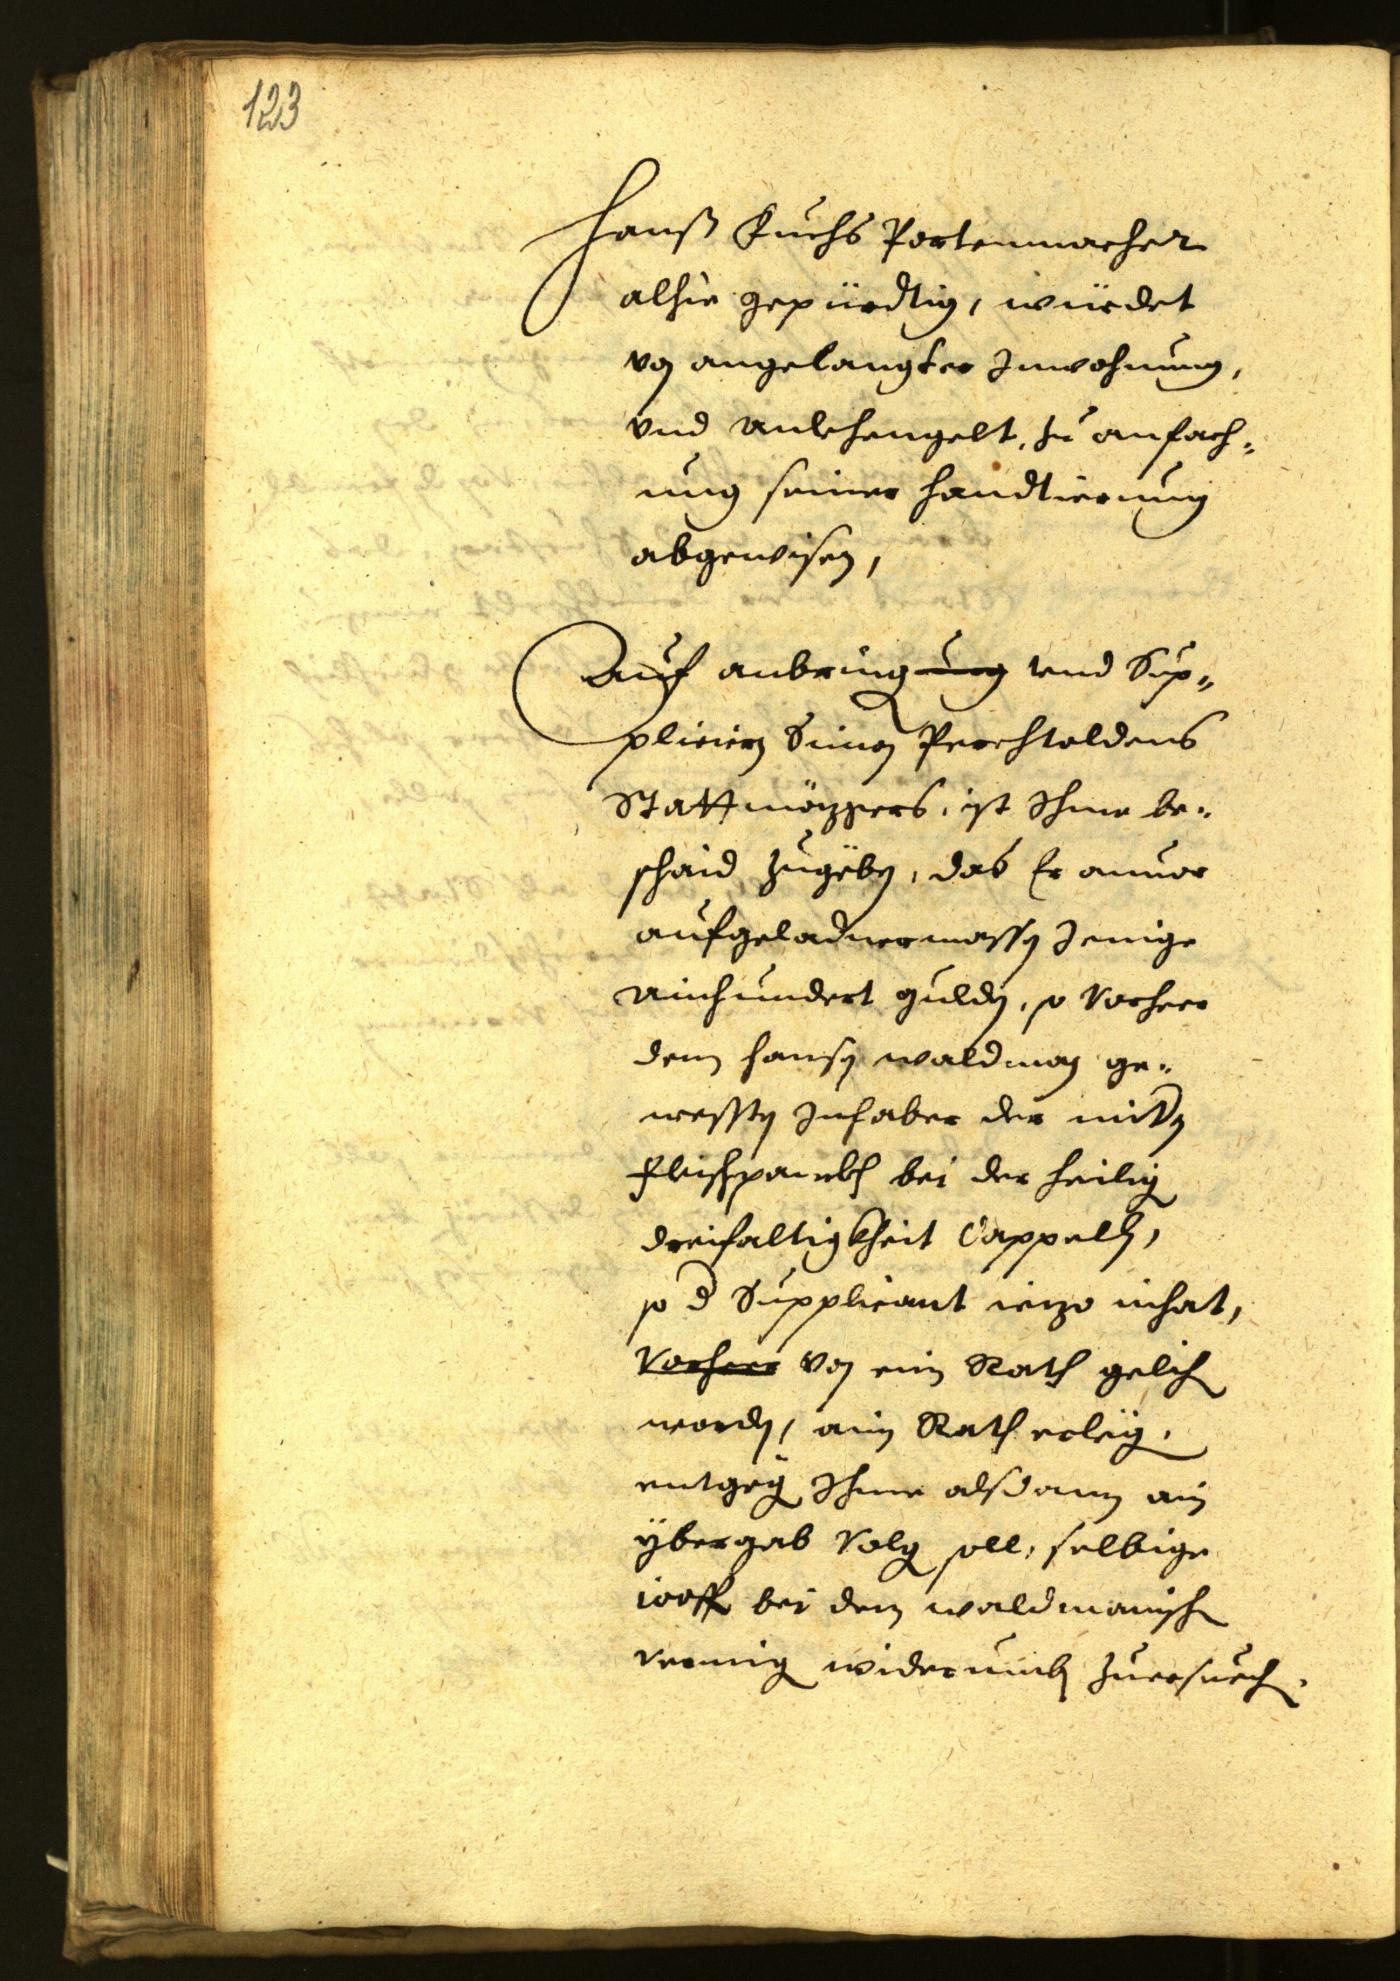 123
Hanß Fuchs Portenmacher
alhie gepürdtig, würdet
von angelangter Inwohnung,
vnd anlehengelt, zu anfach„
ung seiner handtierung
abgewisen,
Auf anbringung vnd Sup„
pliciern Simon Perchtoldens
Stattmözgers, ist Ihme be„
schaid zugeben, das Er anuor
aufgeladnermassen Jenige
ainhundert gulden, so Vorherr
dem hansen waldman ge„
westen Inhaber der mitern
fleischpanckh bei der heilig
dreifaltigkheit Cappellen,
so d Supplicant iezo inhat,
Vorherr von eim Rath gelich
worden, aim Rath erleg,
entgeg Ihme alßdann ain
ybergab Volg soll, selbige
100 fl bei dem waldmanisch
vermig widerumb zuersuech.